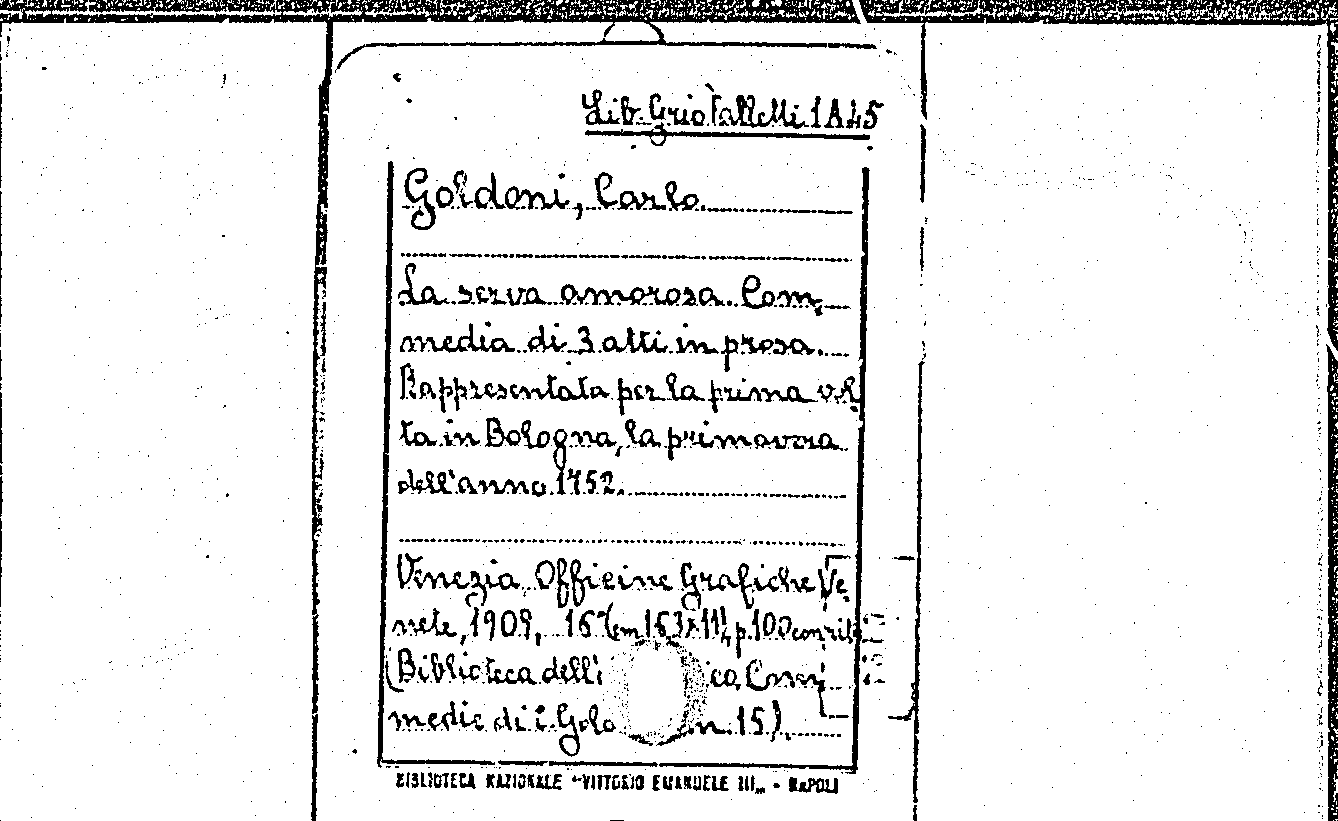 Goldoni, Carlo.
La serva amorosa. Com,
media di 3 atti in prosa.
Rappresentata per la prima vol,
ta in Bologna, la primavera
dell'anno 1752.
Venezia Officine Grafiche Ve,
nete, 1909, 16° (cm 16,3x11), p. 100 con rit.
(Biblioteca dell' Com,
medie di C. Gol n. 15).
BIBLIOTECA NAZIONALE "VITTORIO EMANUELE III„ - NAPOLI